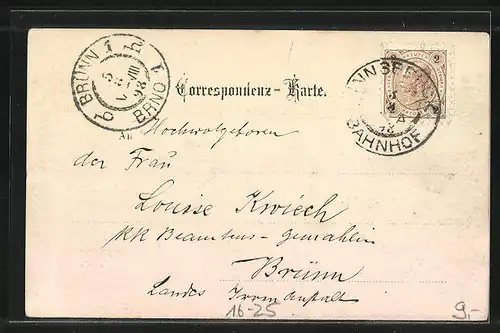 BRÜNN 1
BRNO
VIII
98
Correspondenz-Karte.
2
BAHNHOF
An Hochwolgeboren
der Frau
Louise Kwiech
KK Beamtens-gemahlin
Brünn
Landes Irrenanstalt
16-25
9.-